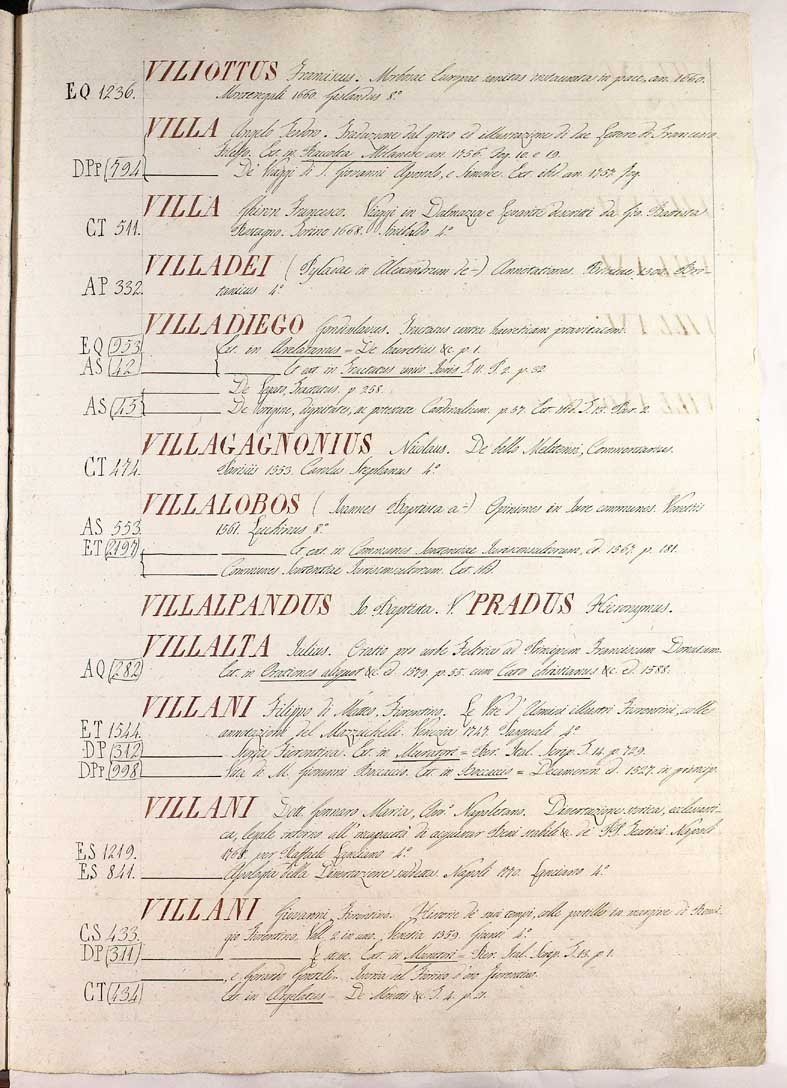 VILIOTTUS Franciscus. Morbosae Europae sanitas instaurata in pace, an. 1660.
EQ 1236. 1660. 8º
VILLA Angelo Teodoro. Traduzione dal greco ed illustrazione di due Lettere di Francesco
Filelfo. Ext. in Raccolta Milanese an. 1756. Fog. 10. e 19.
DPP 794 De' Viaggi di S. Giovanni Apostolo, e Ext. ibid. an. 1757. Fog.
VILLA Francesco. Viaggi in Dalmazia e Levante descritti da Gio. Battista
CT 511. Torino 1668. 4º
VILLADEI (Pylades in Alexandrum de -) Annotationes. Brixiae 1500. Bri-
AP 332. tanicus 4º
VILLADIEGO Gondisalvus. Tractatus contra haereticam pravitatem.
EQ 953 Ext. in Arelatanus = De haereticis &c. p. 1.
AS 42 Et ext. in Tractatus univ. Juris T. 11. P. 2. p. 32
De Legato, Tractatus. p. 258.
AS 45 De Origine, dignitate, ac potestate Cardinalium. p. 57. Ext. ibid. T. 13. Par. 2.
VILLAGAGNONIUS Nicolaus. De bello Melitensi, Commentarius.
CT 474. Parisiis 1553. Carolus Stephanus 4º
VILLALOBOS (Joannes Baptista a -) Opiniones in Jure communes. Venetiis
AS 553. 1561. 8º
ET 2197 Et ext. in Communes Sententiae Jurisconsultorum, ed. 1567. p. 181.
Communes Sententiae Jurisconsultorum. Ext. ibid.
VILLALPANDUS Jo. Baptista. V. PRADUS Hieronymus.
VILLALTA Julius. Oratio pro urbe ad Principem Franciscum Donatum.
AQ 282 Ext. in Orationes aliquot &c. ed. 1579. p. 55. cum Caro Christianus &c. ed. 1588.
VILLANI Filippo di Matteo, Fiorentino. Le Vite d'Uomini illustri Fiorentini, colle
ET 1544. annotazioni del Mazzuchelli. Venezia 1747. Pasquali 4º
DP 312 Fiorentina. Ext. in Muratori = Rer. Ital. Scrip. T. 14. p. 729.
DPP 998 Vita di M. Giovanni Boccaccio. Ext. in Boccaccio = Decamerone ed. 1527. in princip.
VILLANI Dott. Gennaro Maria, Napoletano. Dissertazione storica, ecclesiasti-
ca, legale intorno all' di acquistar Beni stabili &c. de' Napoli
ES 1219. 1768. per Raffaele Lanciano 4º
ES 841. Apologia della Dissertazione suddetta. Napoli 1770. Lanciano 4º
VILLANI Giovanni, Fiorentino. Historie de suoi tempi, colle postille in margine di Remi-
CS 433. gio Fiorentino, Voll. 2 in uno. Venetia 1559. Giunti 4º
DP 311 Ext. in Muratori = Rer. Ital. Scrip. T. 13. p. 1.
, e del Fiorino d'oro Fiorentino.
CT 434 Ext. in Argelatus = De Monetis &c. T. 4. p. 21.